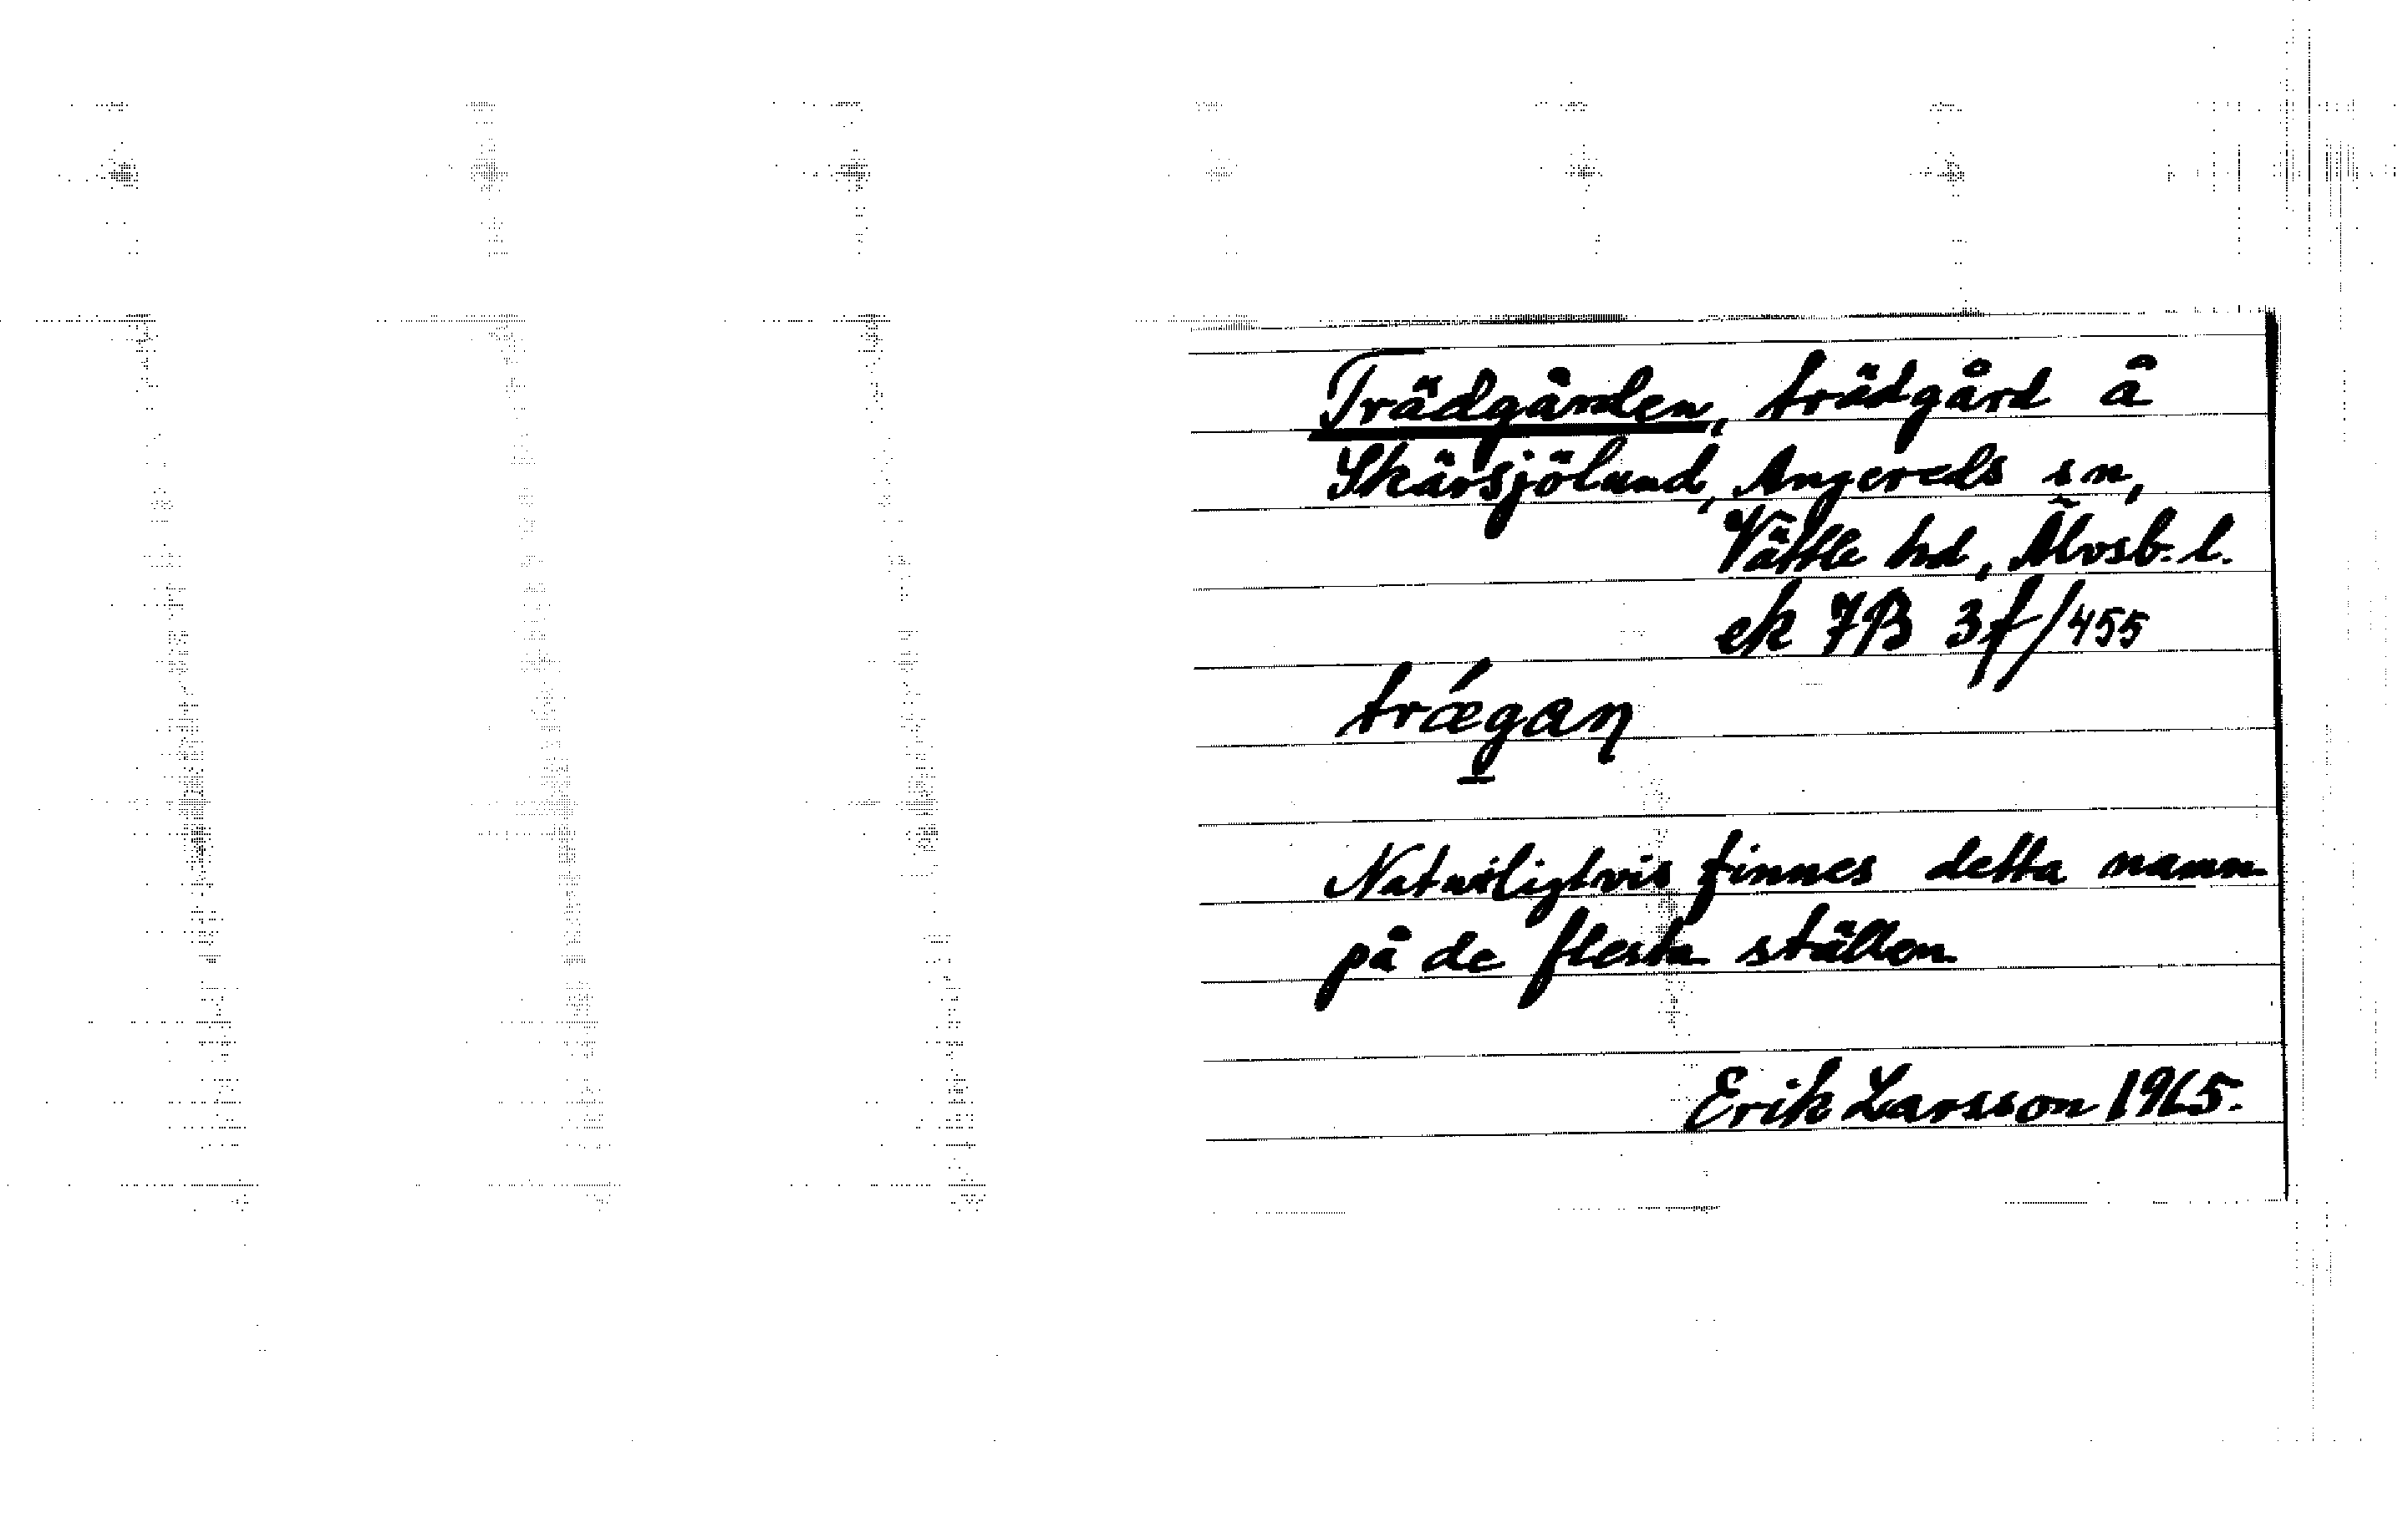 Trädgården, trädgård å
Skärsjölund, Angereds sn,
Vättle hd, Älvsb. l.
ek 7B 3f/455
trǽgaꞃ
Naturligtvis finnes detta namn
på de flesta ställen
Erik Larsson 1965.